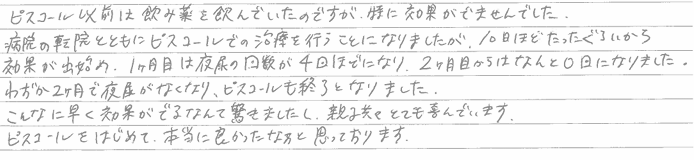 ピスコール以前は飲み薬を飲んでいたのですが、特に効果がでませんでした。
病院の転院とともにピスコールでの治療を行うことになりましたが、10日ほどたったぐらいから
効果が出始め、1ヶ月目は夜尿の回数が4回ほどになり、2ヶ月目からはなんと0日になりました。
わずか2ヶ月で夜尿がなくなり、ピスコールも終了となりました。
こんなに早く効果がでるなんて驚きましたし、親子共々とても喜んでいます。
ピスコールをはじめて、本当に良かったなあと思っております。